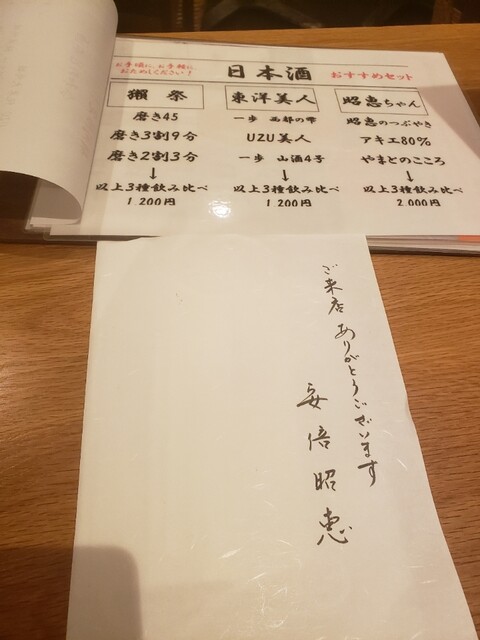 お手頃に、お手軽に
おためしください！
日本酒
おすすめセット
獺祭
磨き45
磨き3割9分
磨き2割3分
↓
以上3種飲み比べ
1,200円
東洋美人
一歩 西都の雫
UZU美人
一歩 山酒4号
↓
以上3種飲み比べ
1,200円
昭恵ちゃん
昭恵のつぶやき
アキエ80%
やまとのこころ
↓
以上3種飲み比べ
2,000円
ご来店ありがとうございます
安倍昭恵